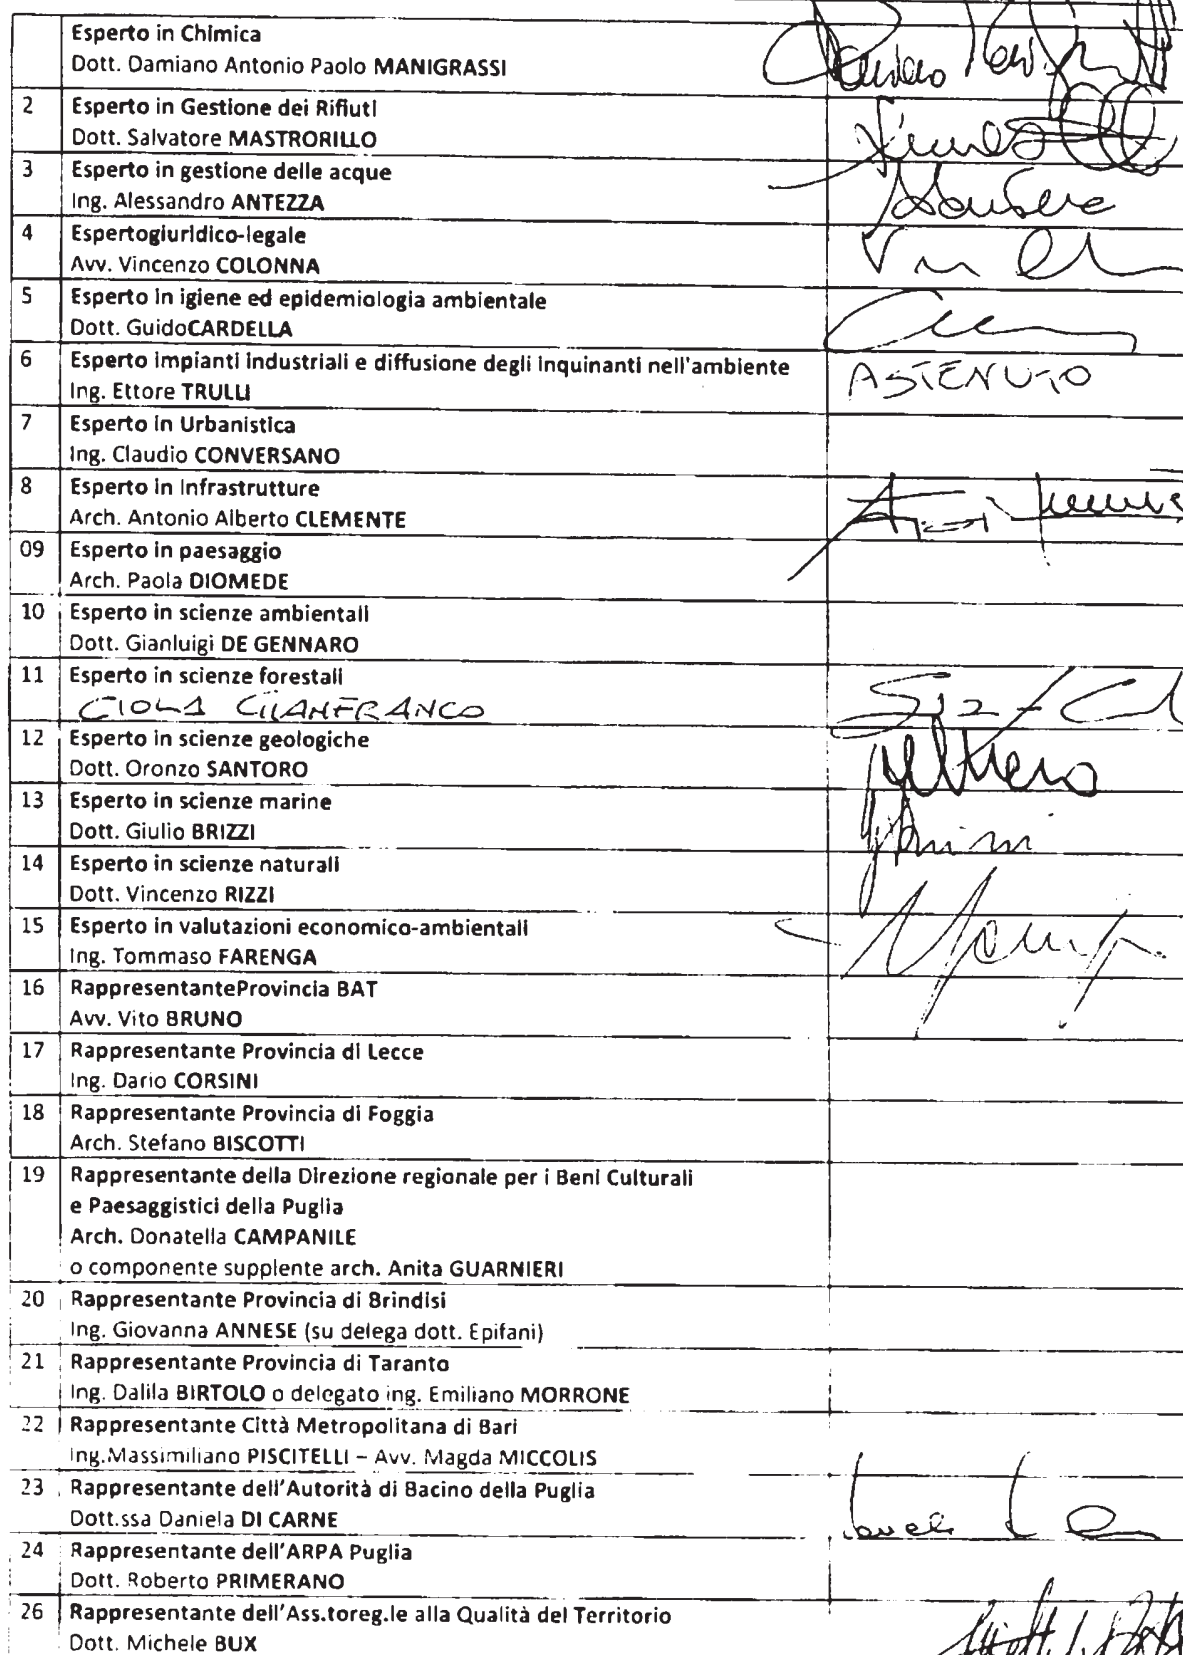 Esperto in Chimica
Dott. Damiano Antonio Paolo MANIGRASSI
2 Esperto in Gestione dei Rifiuti
Dott. Salvatore MASTRORILLO
3 Esperto in gestione delle acque
Ing. Alessandro ANTEZZA
4 Espertogiuridico-legale
Avv. Vincenzo COLONNA
5 Esperto in igiene ed epidemiologia ambientale
Dott. GuidoCARDELLA
6 Esperto impianti industriali e diffusione degli inquinanti nell'ambiente
Ing. Ettore TRULLI
ASTENUTO
7 Esperto in Urbanistica
Ing. Claudio CONVERSANO
8 Esperto in Infrastrutture
Arch. Antonio Alberto CLEMENTE
09 Esperto in paesaggio
Arch. Paola DIOMEDE
10 Esperto in scienze ambientali
Dott. Gianluigi DE GENNARO
11 Esperto in scienze forestali
CIOLA GIANFRANCO
12 Esperto in scienze geologiche
Dott. Oronzo SANTORO
13 Esperto in scienze marine
Dott. Giulio BRIZZI
14 Esperto in scienze naturali
Dott. Vincenzo RIZZI
15 Esperto in valutazioni economico-ambientali
Ing. Tommaso FARENGA
16 RappresentanteProvincia BAT
Avv. Vito BRUNO
17 Rappresentante Provincia di Lecce
Ing. Dario CORSINI
18 Rappresentante Provincia di Foggia
Arch. Stefano BISCOTTI
19 Rappresentante della Direzione regionale per i Beni Culturali
e Paesaggistici della Puglia
Arch. Donatella CAMPANILE
o componente supplente arch. Anita GUARNIERI
20 Rappresentante Provincia di Brindisi
Ing. Giovanna ANNESE (su delega dott. Epifani)
21 Rappresentante Provincia di Taranto
Ing. Dalila BIRTOLO o delegato ing. Emiliano MORRONE
22 Rappresentante Città Metropolitana di Bari
Ing.Massimiliano PISCITELLI – Avv. Magda MICCOLIS
23 Rappresentante dell'Autorità di Bacino della Puglia
Dott.ssa Daniela DI CARNE
24 Rappresentante dell'ARPA Puglia
Dott. Roberto PRIMERANO
26 Rappresentante dell'Ass.toreg.le alla Qualità del Territorio
Dott. Michele BUX